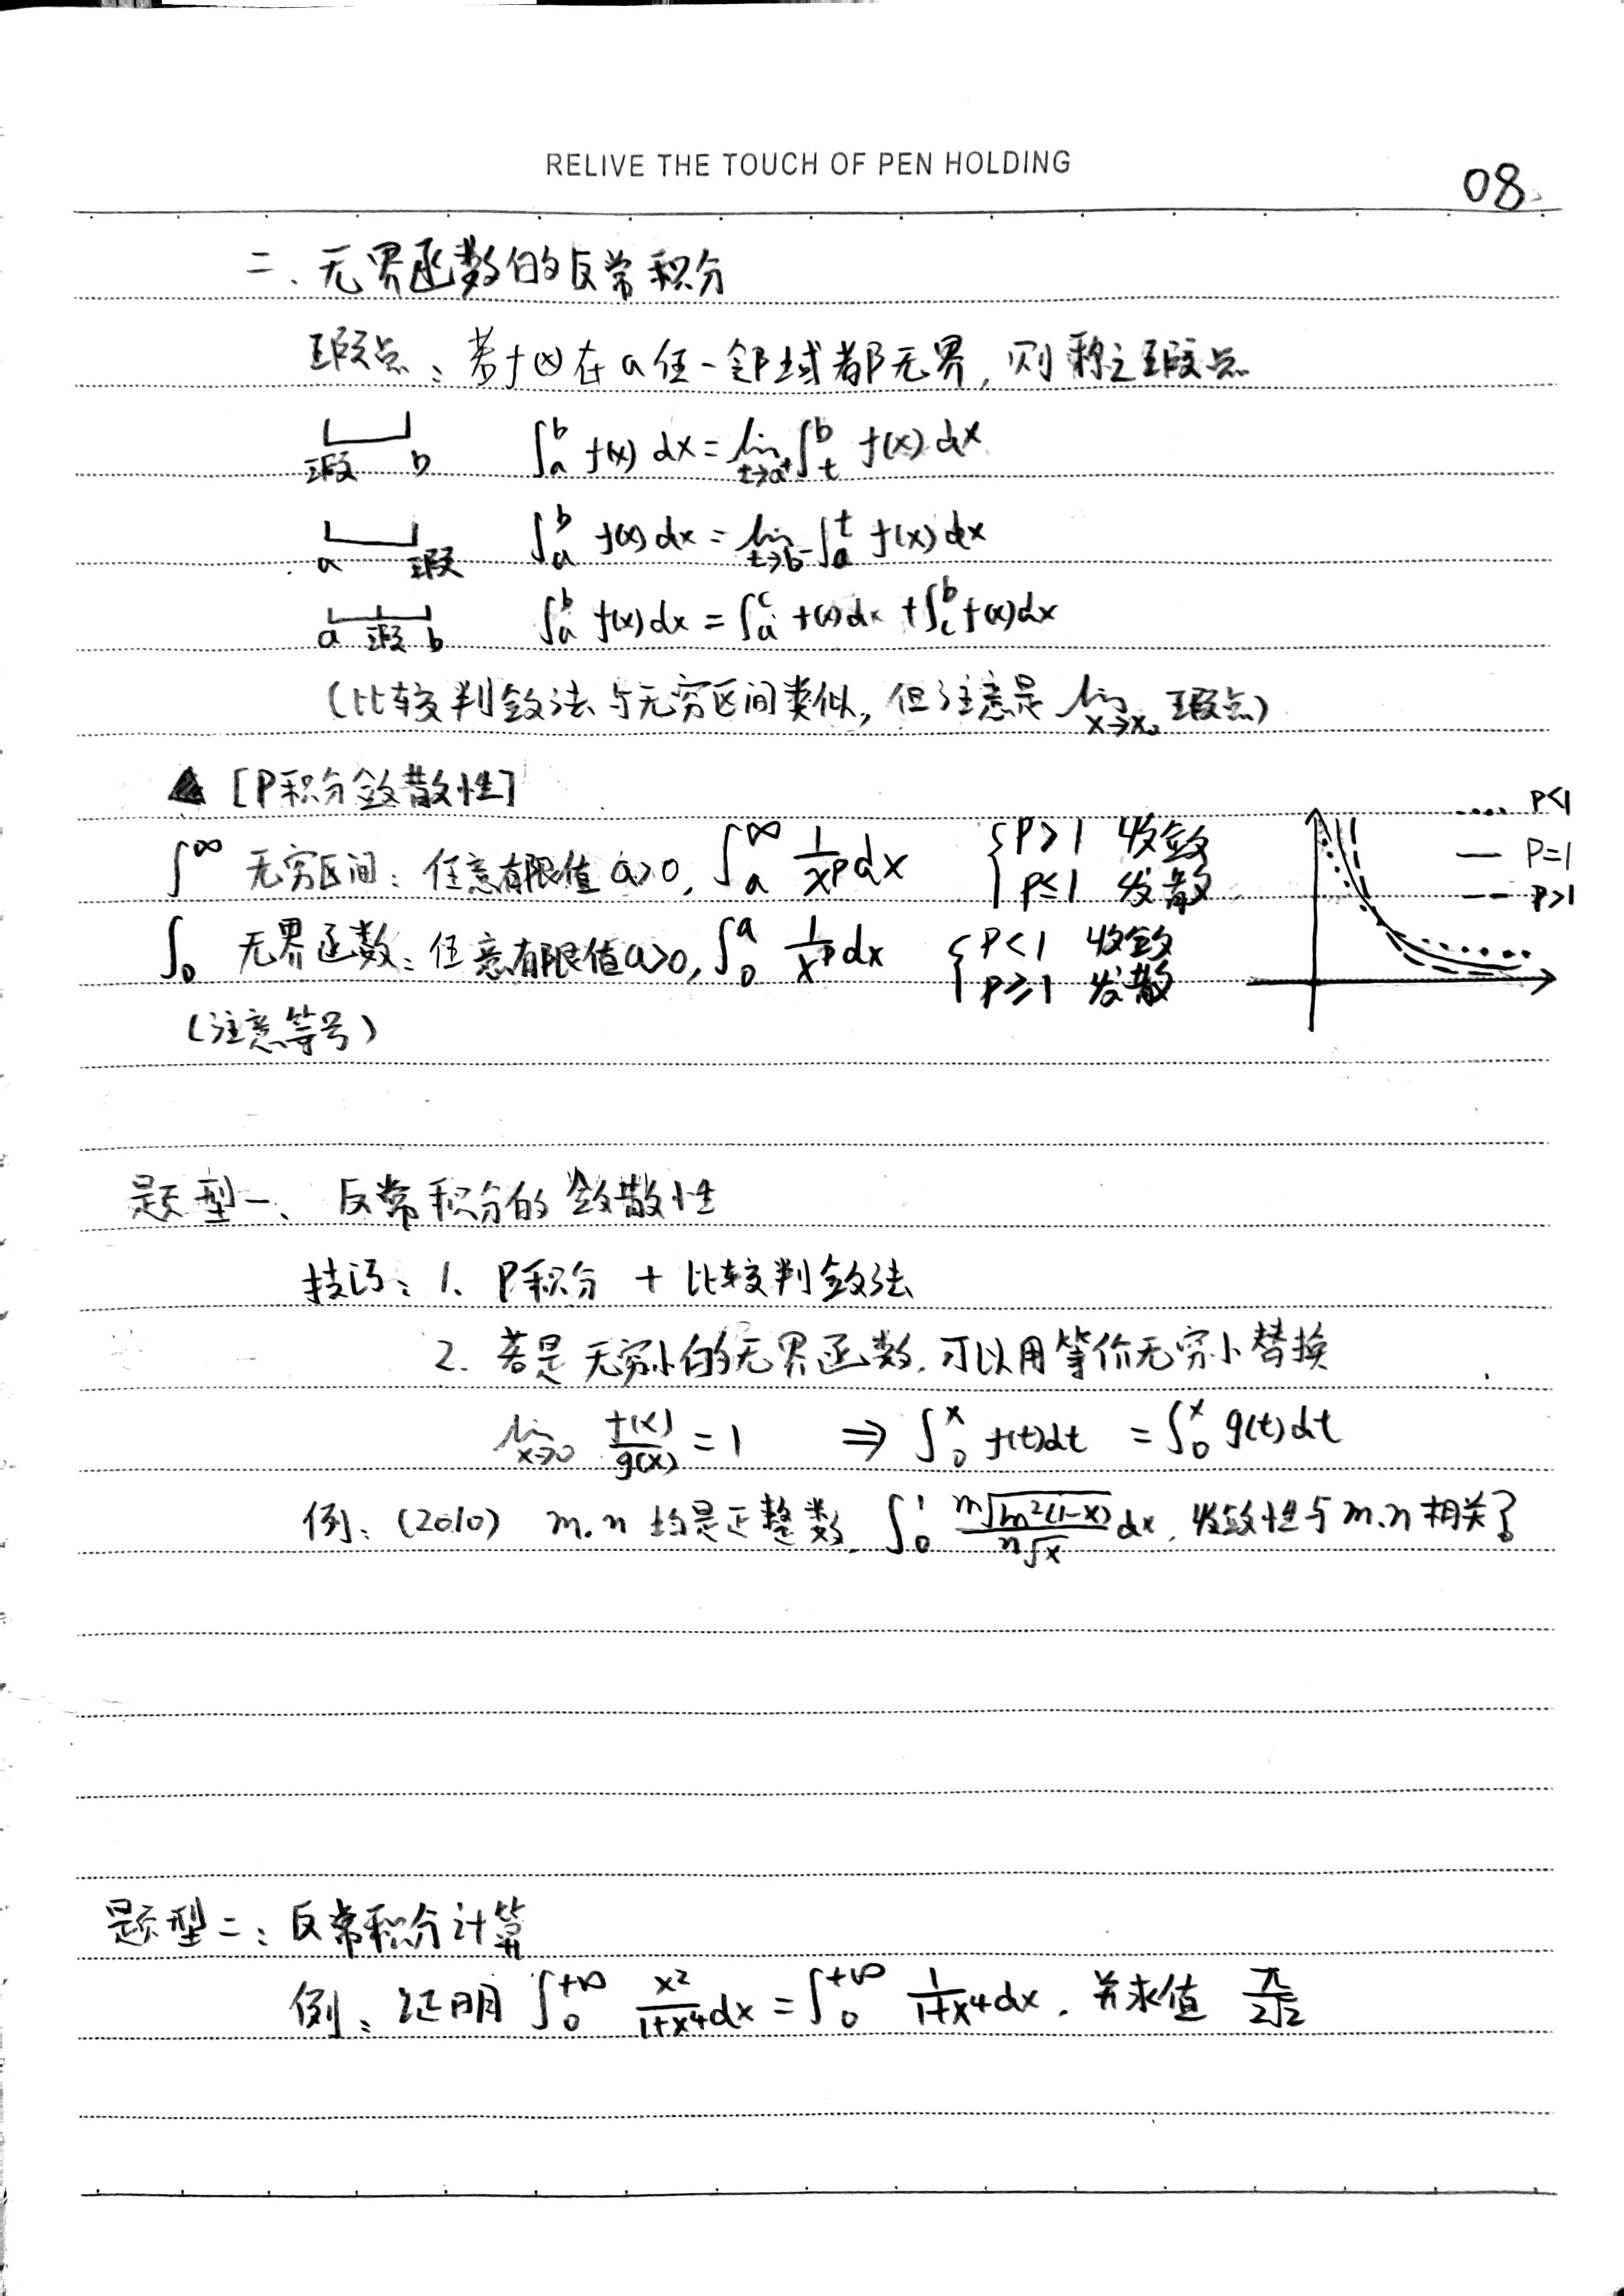 RELIVE THE TOUCH OF PEN HOLDING
08
二、无界函数的反常积分
瑕点：若f(x)在a任一邻域都无界，则称之瑕点
瑕 b ∫_a^b f(x) dx = lim_{t→a⁺} ∫_t^b f(x) dx
a 瑕 ∫_a^b f(x) dx = lim_{t→b⁻} ∫_a^t f(x) dx
a 瑕 b ∫_a^b f(x) dx = ∫_a^c f(x) dx + ∫_c^b f(x) dx
（比较判敛法与无穷区间类似，但注意是 lim_{x→x₀} 瑕点）
▲ [P积分敛散性]
∫^∞ 无穷区间：任意有限值 a>0, ∫_a^∞ 1/x^p dx { p>1 收敛
p≤1 发散
∫_0 无界函数：任意有限值 a>0, ∫_0^a 1/x^p dx { p<1 收敛
p≥1 发散
P<1
P=1
P>1
（注意等号）
题型一、反常积分的敛散性
技巧：1. P积分 + 比较判敛法
2. 若是无穷小的无界函数，可以用等价无穷小替换
lim_{x→0} f(x)/g(x) = 1 ⇒ ∫_0^x f(t)dt = ∫_0^x g(t)dt
例：(2010) m.n 均是正整数. ∫_0^1 ᵐ√(ln²(1-x)) / ⁿ√x dx，收敛性与 m.n 相关？
题型二：反常积分计算
例：证明 ∫_0^{+∞} x²/(1+x⁴) dx = ∫_0^{+∞} 1/(1+x⁴) dx. 并求值 π/(2√2)